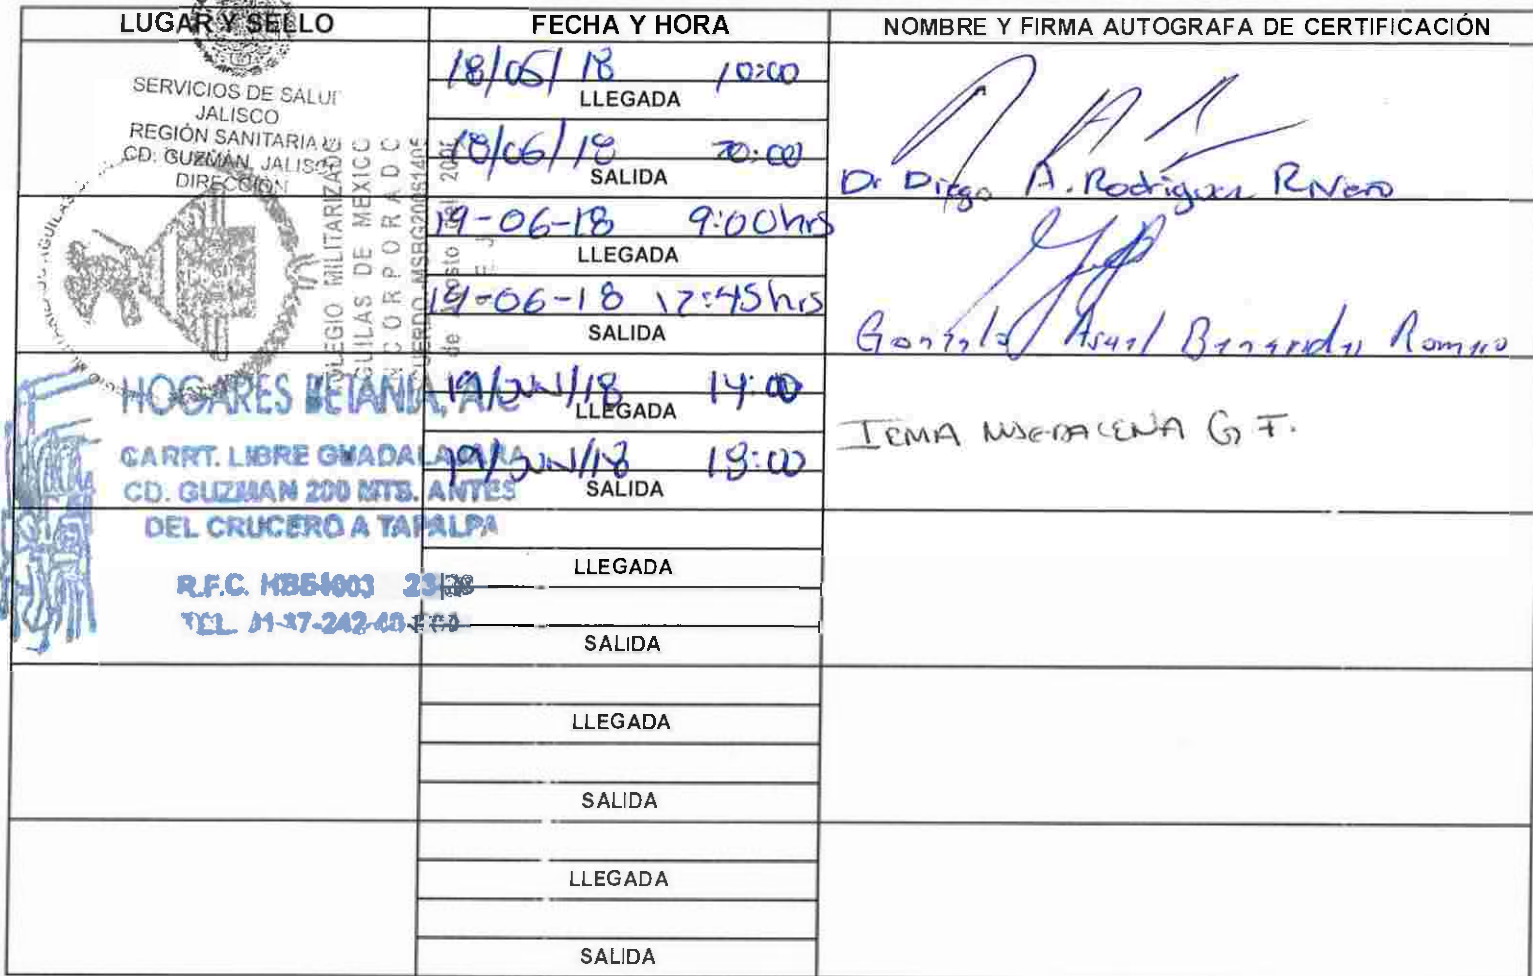 LUGAR Y SELLO
FECHA Y HORA
NOMBRE Y FIRMA AUTOGRAFA DE CERTIFICACIÓN
SERVICIOS DE SALU
JALISCO
REGIÓN SANITARIA
CD. GUZMÁN, JALISCO
DIRECCIÓN
18/06/18 10:00
LLEGADA
18/06/18 20:00
SALIDA
Dr Diego A. Rodriguez Rivero
MILITARIZADO
DE MEXICO
INCORPORADO
19-06-18 9:00hrs
LLEGADA
19-06-18 12:45hrs
SALIDA
Romero
HOGARES BETANIA, A/C
CARRT. LIBRE GUADALAJARA
CD. GUZMAN 200 MTS. ANTES
DEL CRUCERO A TAPALPA
R.F.C.
TEL.
19/JUN/18 14:00
LLEGADA
19/JUN/18 18:00
SALIDA
G F.
LLEGADA
SALIDA
LLEGADA
SALIDA
LLEGADA
SALIDA